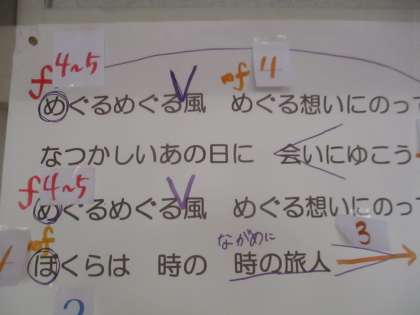 f 4~5 V mf 4
めぐるめぐる風 めぐる想いにのって
なつかしいあの日に 会いにゆこう
f 4~5 V
めぐるめぐる風 めぐる想いにのって
mf ながめに 3
ぼくらは 時の 時の旅人